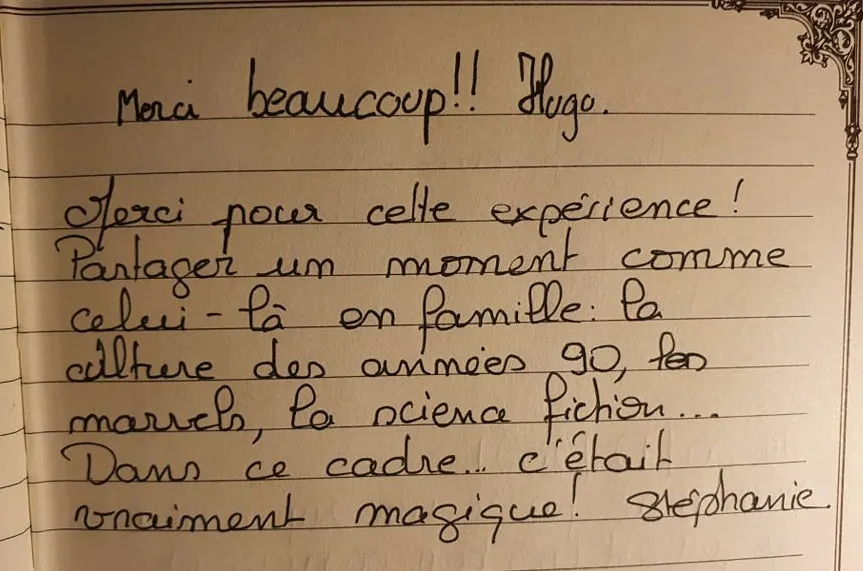 Merci beaucoup!! Hugo.
Merci pour cette expérience!
Partager un moment comme
celui-là en famille: la
culture des années 90, les
marvels, la science fiction...
Dans ce cadre... c'était
vraiment magique! Stéphanie.